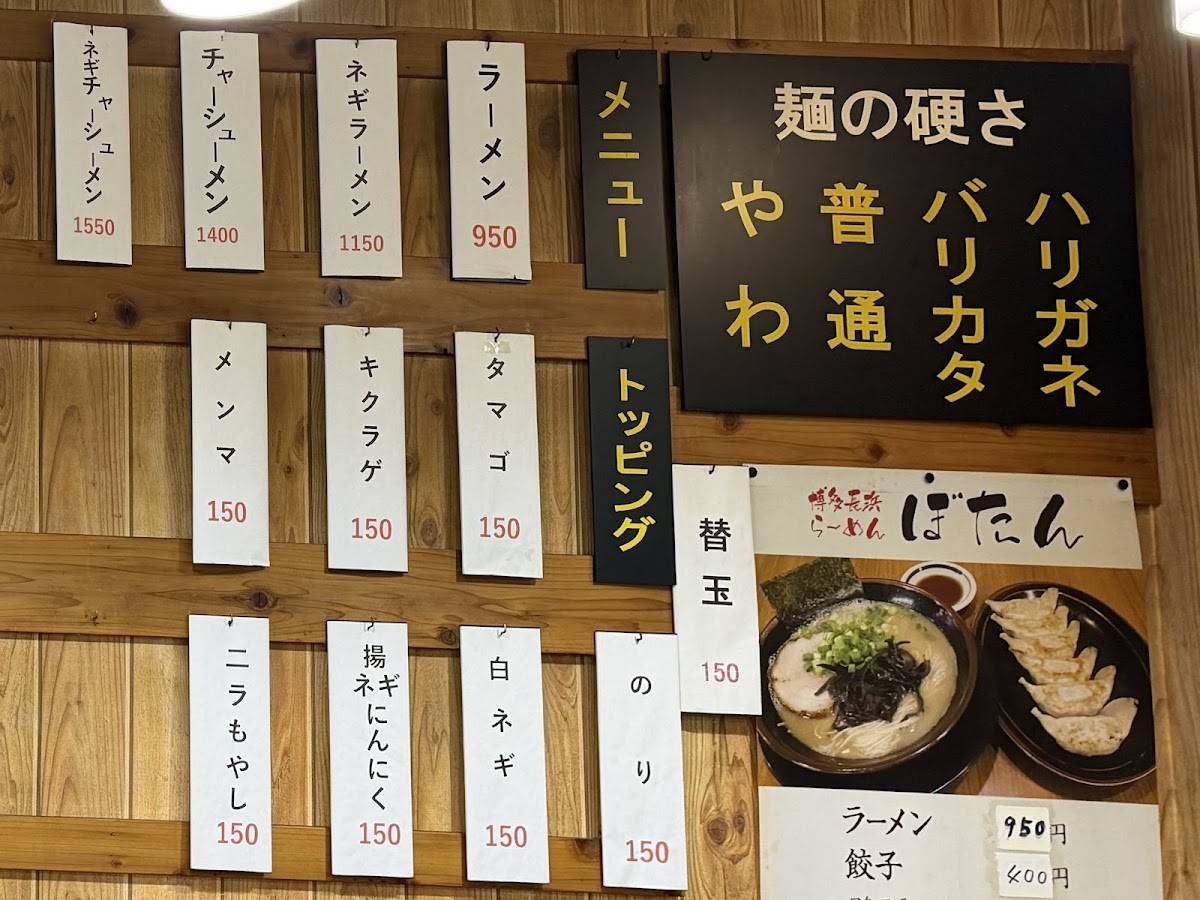 麺の硬さ
ハリガネ
バリカタ
普通
やわ
メニュー
ラーメン
950
ネギラーメン
1150
チャーシューメン
1400
ネギチャーシューメン
1550
トッピング
タマゴ
150
キクラゲ
150
メンマ
150
替玉
150
のり
150
白ネギ
150
揚ネギにんにく
150
ニラもやし
150
博多長浜
ら〜めん
ぼたん
ラーメン 950円
餃子 400円